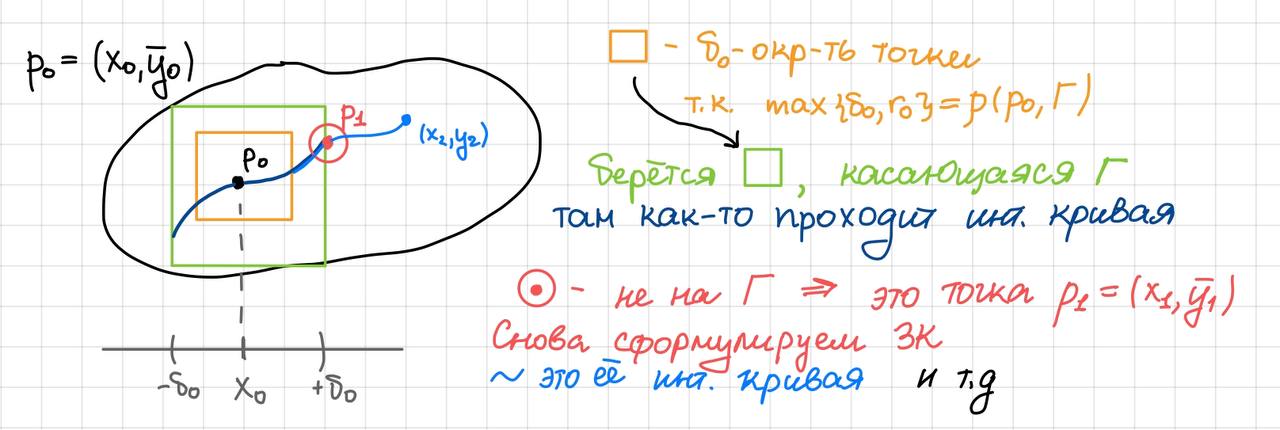 p₀ = (x₀, ȳ₀)
p₁
(x₂, y₂)
p₀
-δ₀ x₀ +δ₀
- δ₀-окр-ть точки
т.к. max{δ₀, r₀} = ρ(p₀, Γ)
берётся □, касающаяся Γ
там как-то проходит инт. кривая
- не на Γ ⇒ это точка p₁ = (x₁, ȳ₁)
Снова сформулируем ЗК
~ это её инт. кривая и т.д